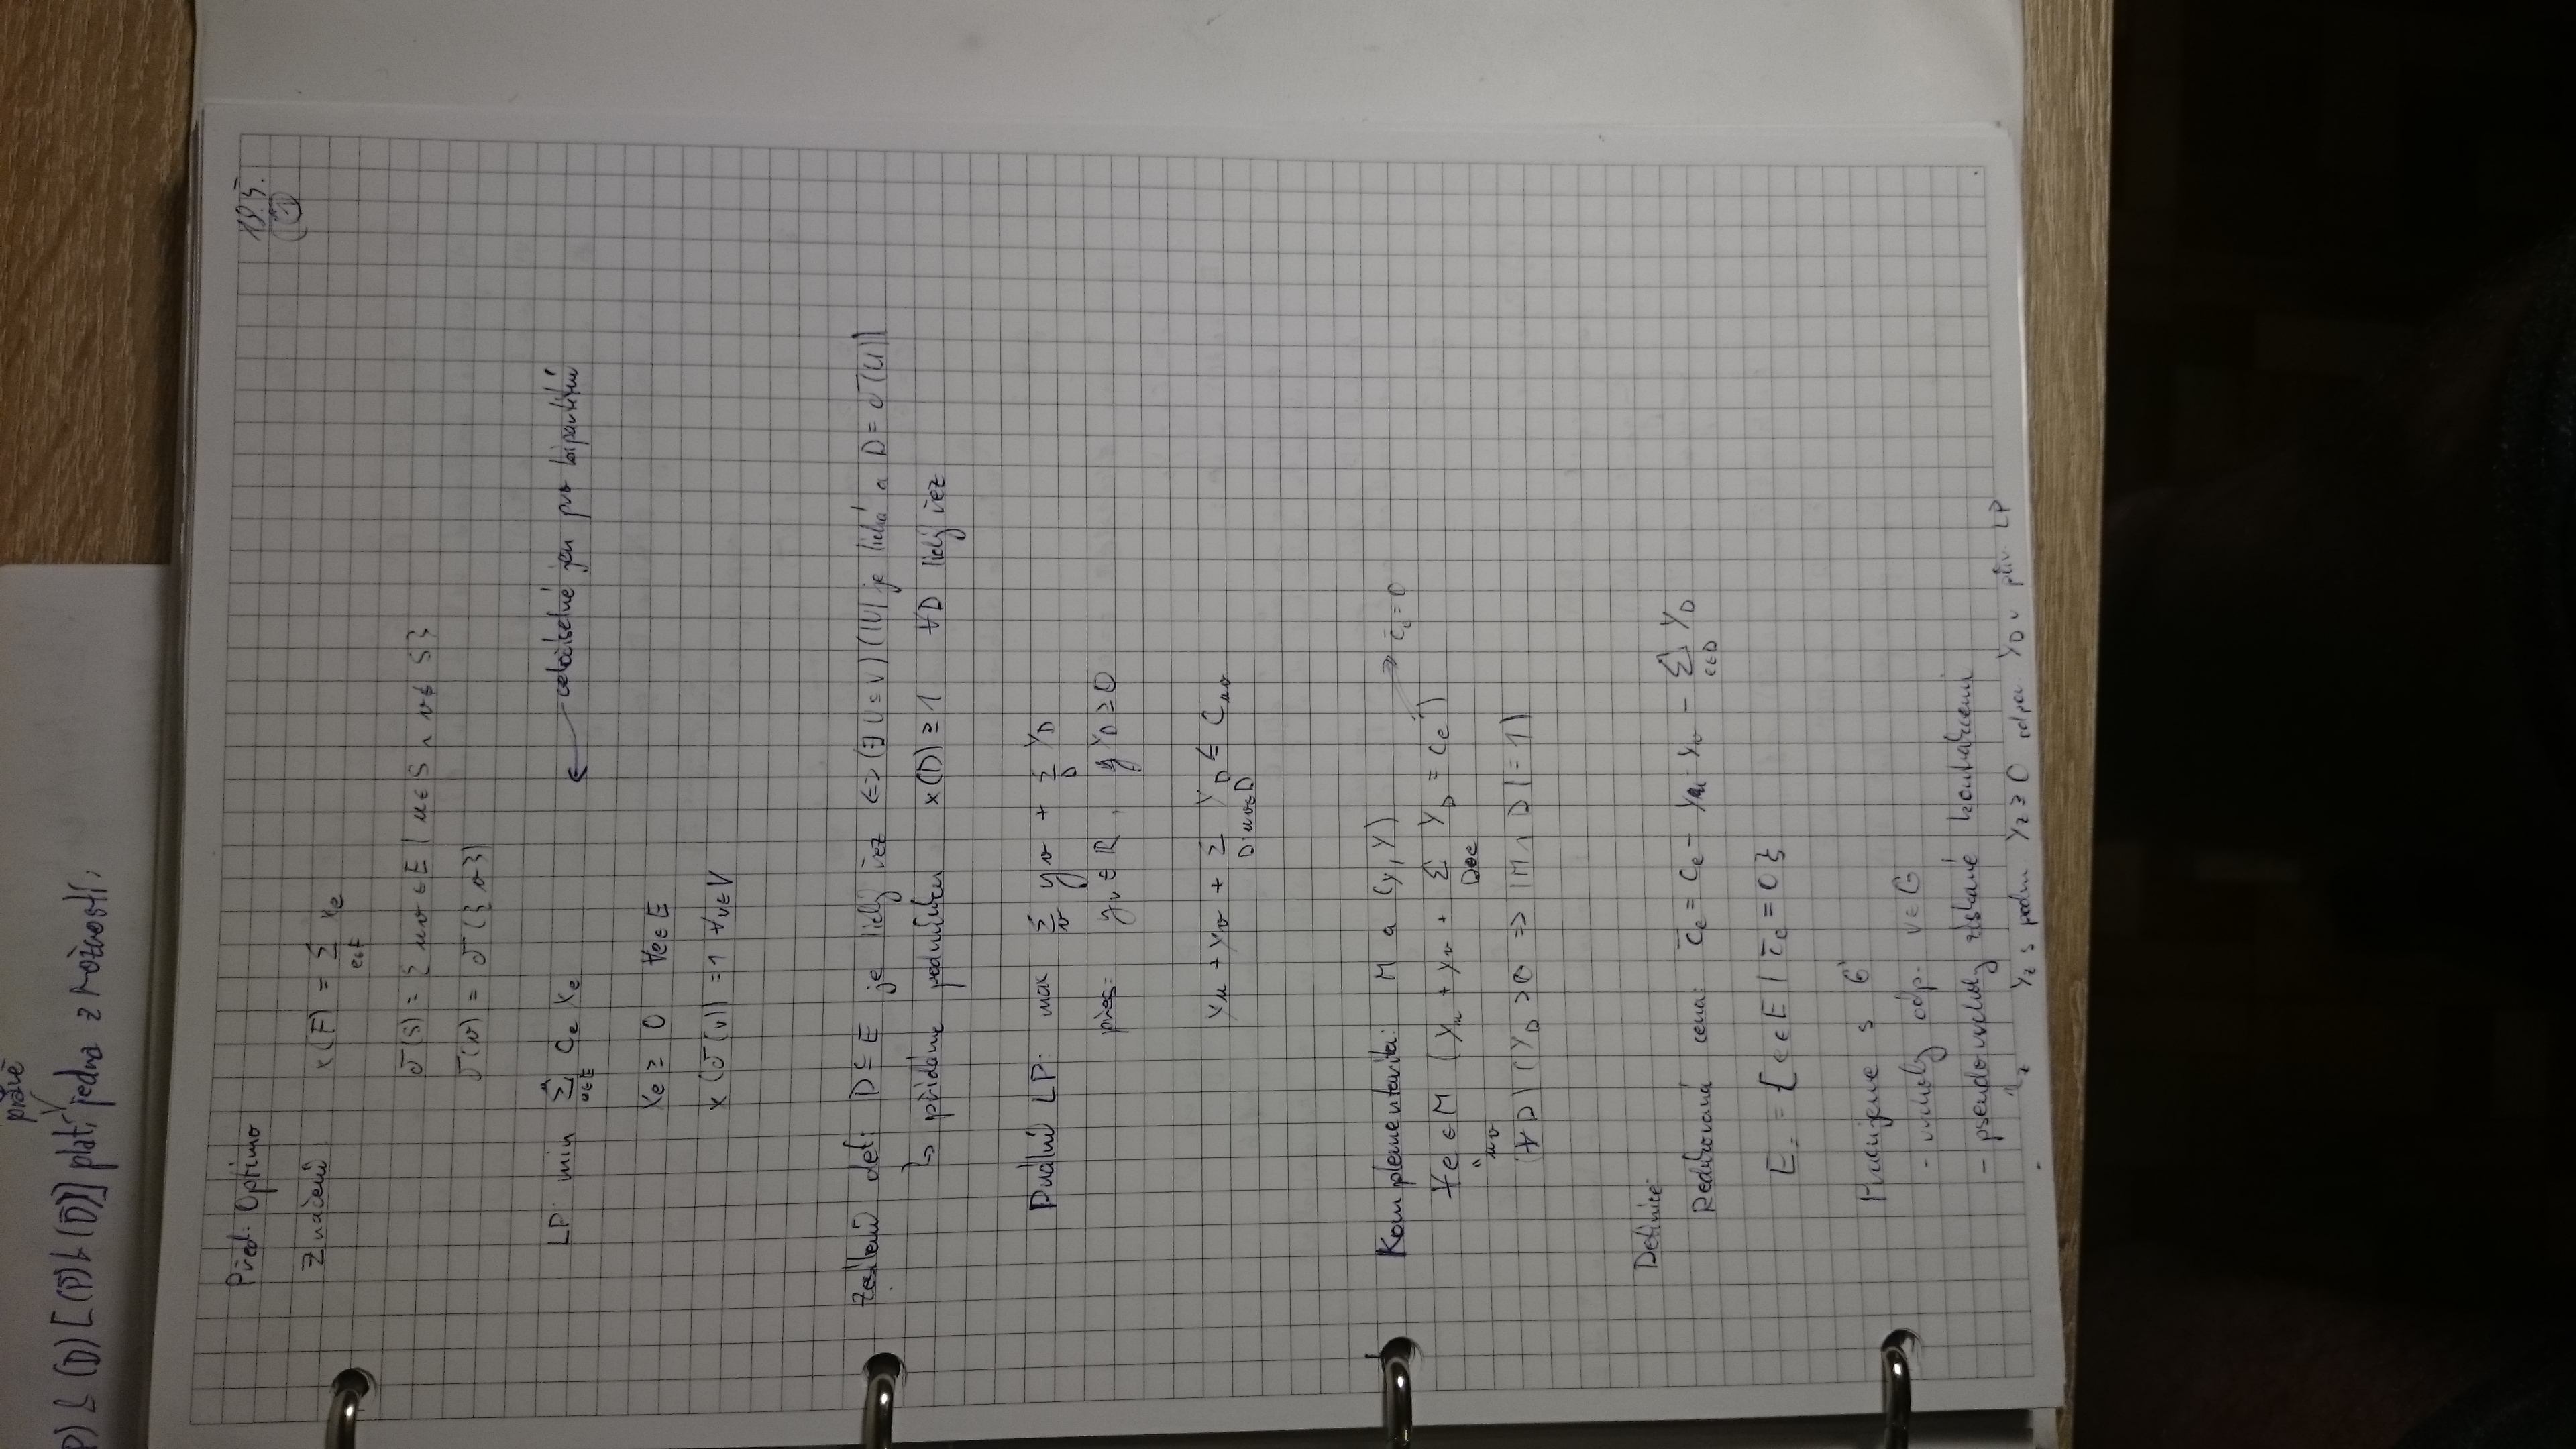 právě
P) & (D) [(P) & (D)] platí jedna z možností:
18.5.
①
Před: Optimo
Značení: x(F) = Σ_{e∈F} x_e
δ(S) = { uv ∈ E | u ∈ S ∧ v ∉ S }
δ(v) = δ({v})
LP: min Σ_{e∈E} c_e x_e ← celočíselné jen pro bipartitní
x_e ≥ 0 ∀e∈E
x(δ(v)) = 1 ∀v∈V
def: D ⊆ E je lichý řez <=> (∃ U ⊆ V) (|U| je lichá a D = δ(U))
↳ přidáme podmínku x(D) ≥ 1 ∀D lichý řez
Duální LP: max Σ_v y_v + Σ_D Y_D
přes: y_v ∈ ℝ, Y_D ≥ 0
y_u + y_v + Σ_{D: uv∈D} Y_D ≤ c_uv
Komplementarita: M a (y, Y)
∀e ∈ M (y_u + y_v + Σ_{D∋e} Y_D = c_e) → c̄_e = 0
"uv
(∀D) (Y_D > 0 => |M ∩ D| = 1)
Definice
Redukovaná cena: c̄_e = c_e - y_u - y_v - Σ_{e∈D} Y_D
E_= = { e ∈ E | c̄_e = 0 }
Pracujeme s G'
- vrcholy odp. v ∈ G
- pseudovrcholy získané kontrakcemi
y_z s podm y_z ≥ 0 odpov. Y_D v pův. LP